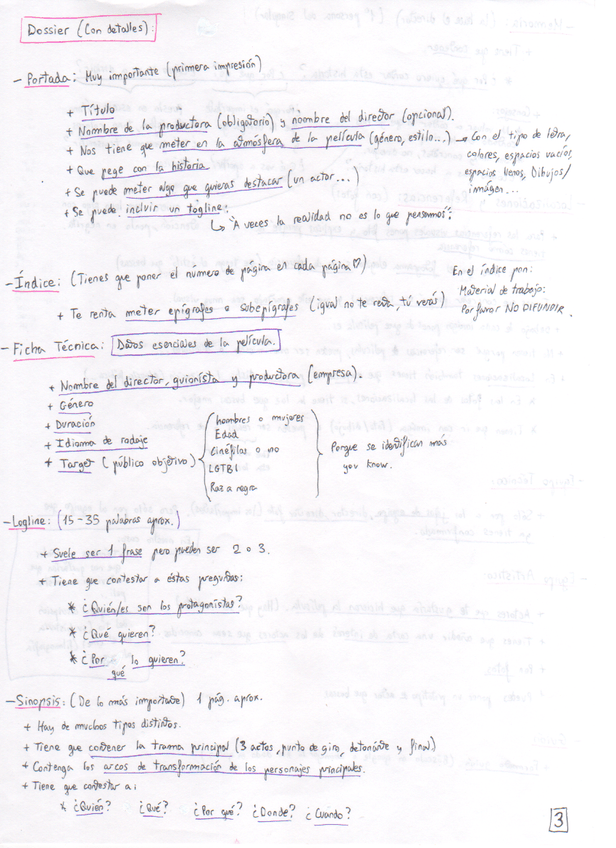 Dossier (Con detalles):
- Portada: Muy importante (primera impresión)
+ Título
+ Nombre de la productora (obligatorio) y nombre del director (opcional).
+ Nos tiene que meter en la atmósfera de la película (género, estilo...) → Con el tipo de letra,
colores, espacios vacíos,
espacios llenos, Dibujos/
imágen...
+ Que pege con la historia
+ Se puede meter algo que quieras destacar (un actor...)
+ Se puede incluir un tagline:
↳ "A veces la realidad no es lo que pensamos";
- Índice: (Tienes que poner el numero de página en cada página ♡)
En el índice pon:
Material de trabajo:
Por favor NO DIFUNDIR.
+ Te renta meter epígrafes o subepígrafes (igual no te renta, tú verás)
- Ficha Técnica: Datos esenciales de la película.
+ Nombre del director, guionista y productora (empresa).
+ Género
+ Duración
+ Idioma de rodaje
+ Target (público objetivo)
hombres o mujeres
Edad
Cinéfilas o no
LGTBI
Raza negra
Porque se identifican más
you know.
- Logline: (15-35 palabras aprox.)
+ Suele ser 1 frase pero pueden ser 2 o 3.
+ Tiene que contestar a éstas preguntas:
* ¿Quién/es son los protagonistas?
* ¿Qué quieren?
* ¿Por qué lo quieren?
- Sinopsis: (De lo más importante) 1 pág. aprox.
+ Hay de muchos tipos distintos.
+ Tiene que contener la trama principal (3 actos, punto de giro, detonante y final)
+ Contenga los arcos de transformación de los personajes principales.
+ Tiene que contestar a:
* ¿Quién? ¿Qué? ¿Por qué? ¿Donde? ¿Cuando?
3